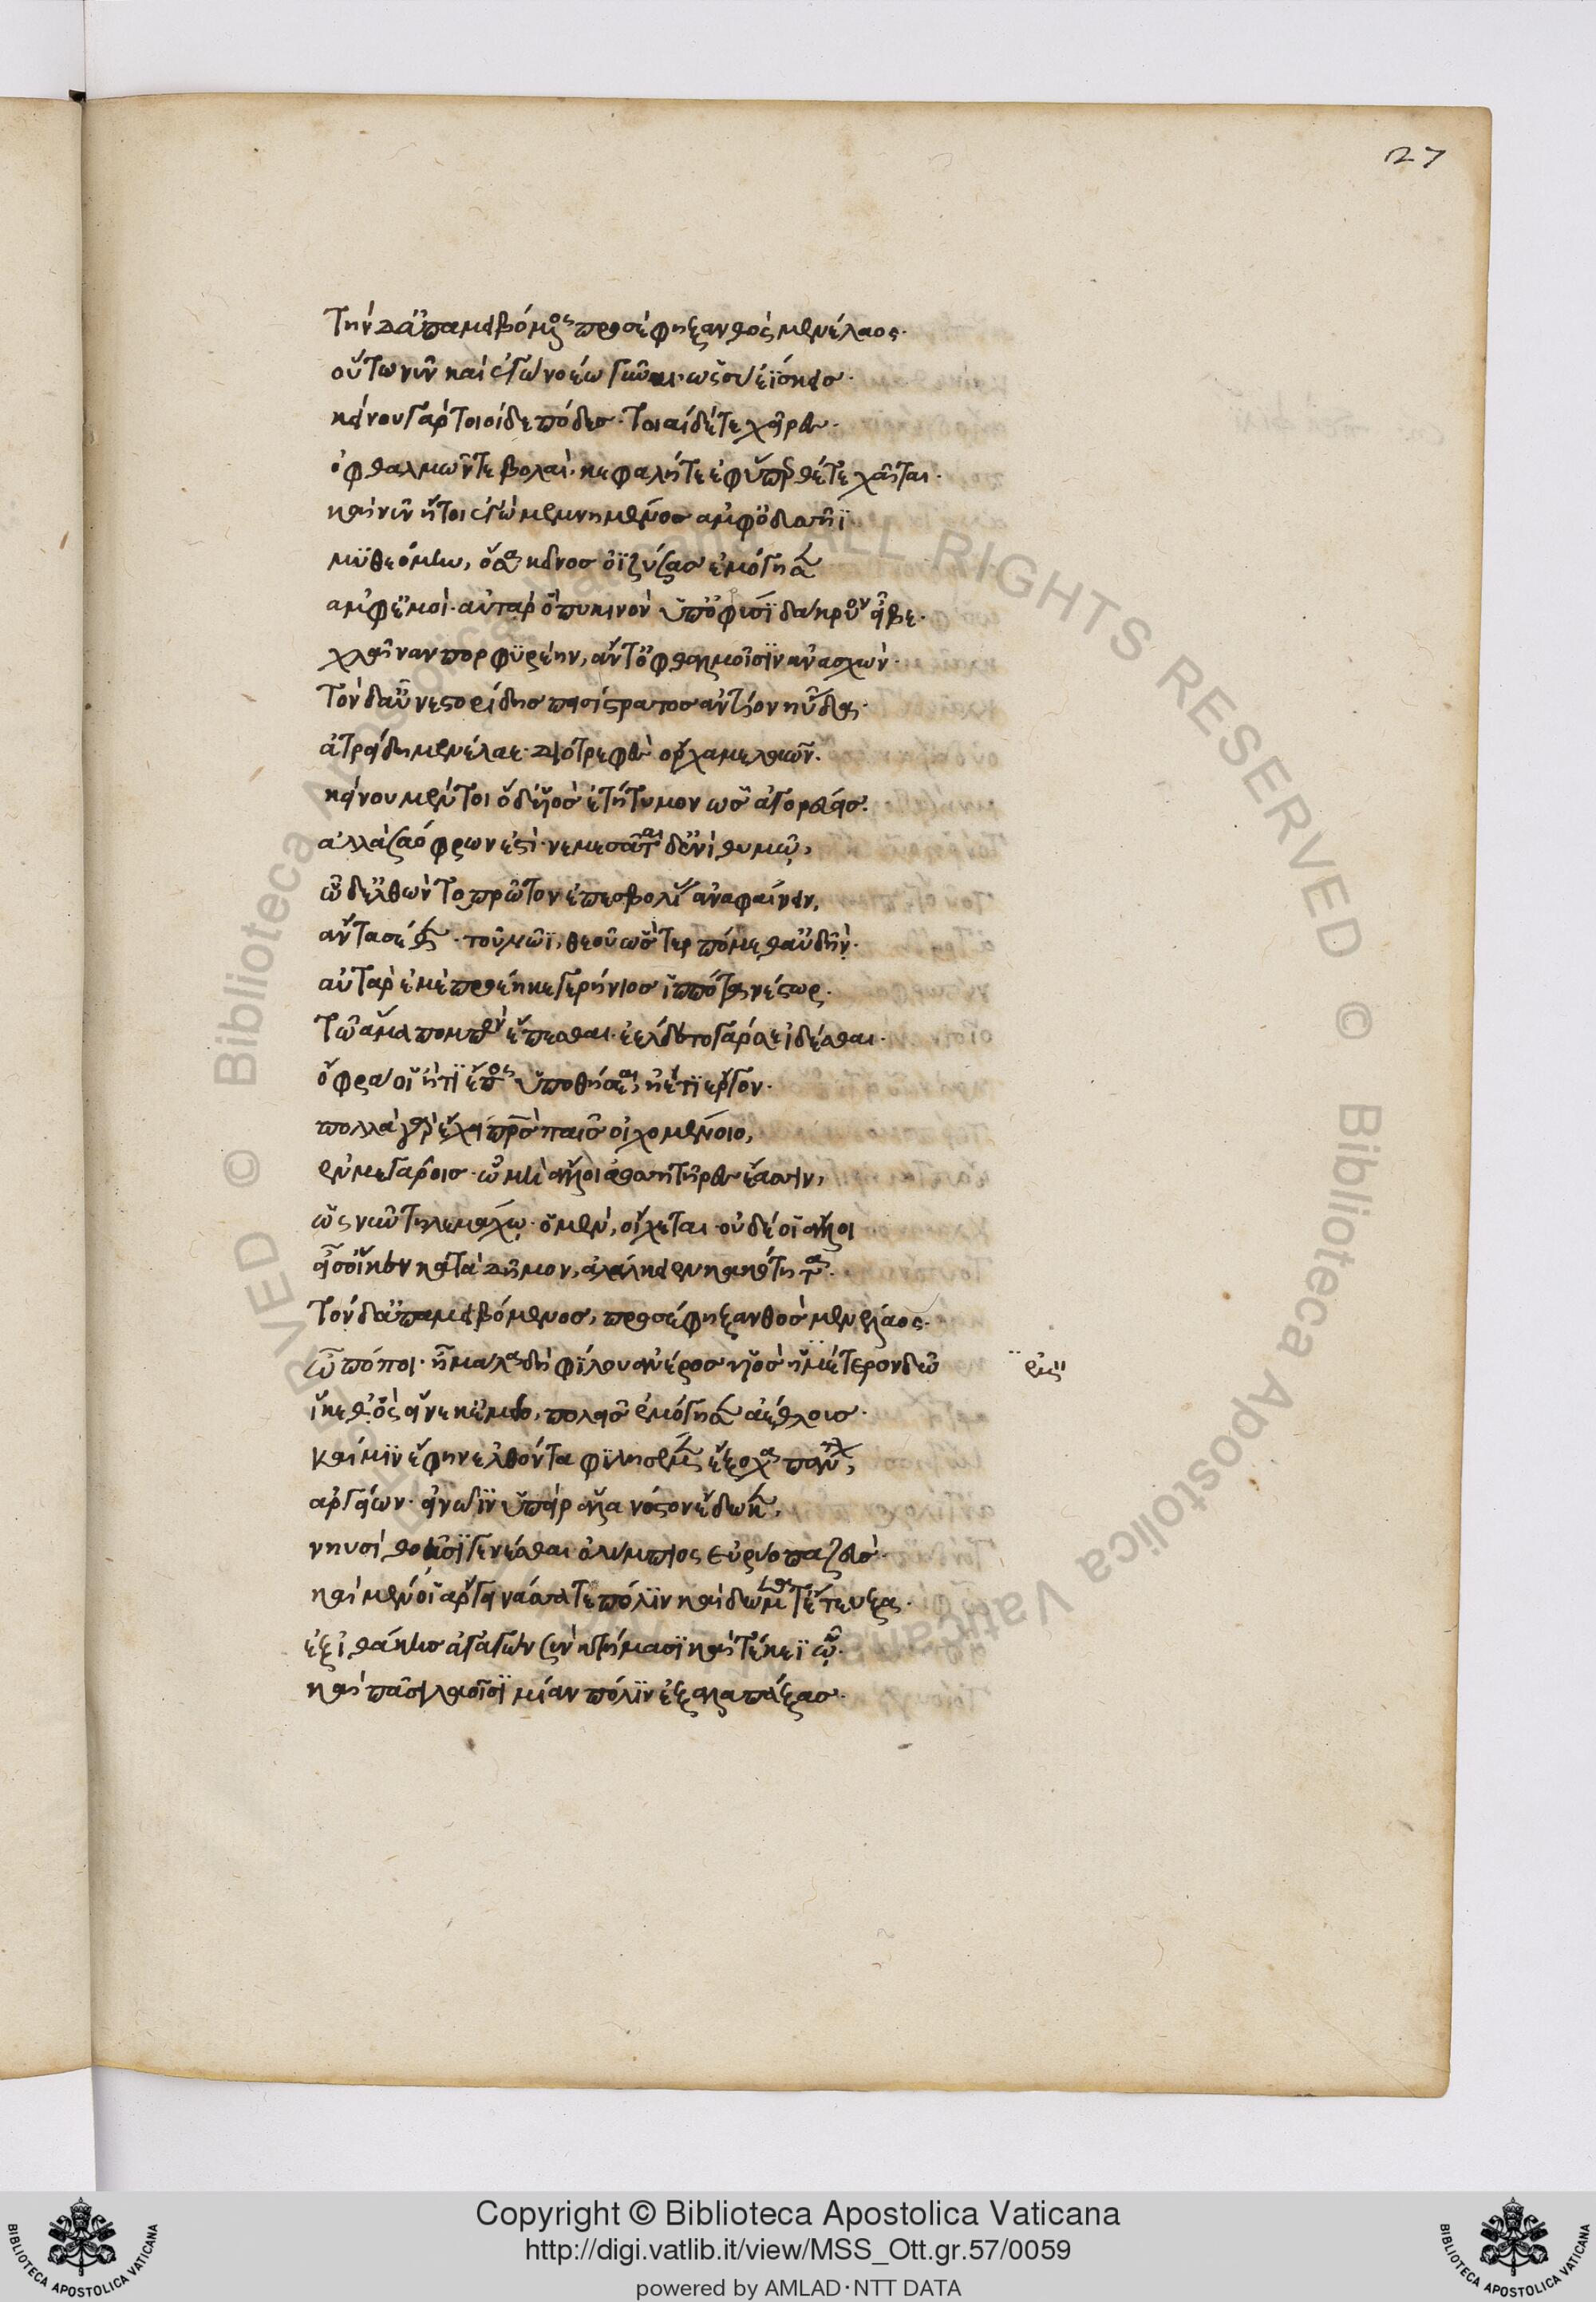 27
Τὴν δἀπαμειβόμενος προσέφη ξανθὸς μενέλαος.
οὕτω νῦν καὶ ἐγὼ νοέω γύναι. ὡς σὺ ἐΐσκεις.
κείνου γάρ τοι οἵδε πόδες. τοιαίδέτε χεῖρες.
ὀφθαλμῶν τε βολαὶ. κεφαλήτε ἐφύπερθέ τε χαῖται.
καὶ νῦν ἤτοι ἐγὼ μεμνημένος ἀμφ ὀδυσῆϊ
μυθεόμην, ὅσα κεῖνος ὀϊζύσας ἐμόγησεν
ἀμφ ἐμοὶ. αὐτὰρ ὁ πυκινὸν ὑπ ὀφρύσι δάκρυον εἶβε.
χλαῖναν πορφυρέην, ἄντ ὀφθαλμοῖσιν ἀνασχὼν.
Τὸν δαὖ νεστορίδης πεισίστρατος ἀντίον ηὔδας.
ἀτρείδη μενέλαε. διοτρεφὲς ὄρχαμε λαῶν.
κείνου μέν τοι ὅδ υἱὸς ἐτήτυμον ὡς ἀγορεύεις.
ἀλλὰ σαόφρων ἐστὶ. νεμεσσᾶται δ ἐνὶ θυμῷ,
ὧδ ἐλθὼν τοπρῶτον ἐπεσβολίας ἀναφαίνειν,
ἄντα σέθεν. τοῦ νῶϊ, θεοῦ ὣς τερπόμεθ αὐδὴν.
αὐτὰρ ἐμὲ προέηκε γερήνιος ἱππότα νέστωρ.
τῷ ἅμα πομπὸν ἕπεσθαι. ἐέλδετο γάρ σε ἰδέσθαι.
ὄφρα οἱ ἤ τι ἔπος ὑποθήσεαι, ἠέ τι ἔργον.
πολλὰ γὰρ ἔχει πατρὸς παῖς οἰχομένοιο,
ἐν μεγάροις. ᾧ μὴ ἄλλοι ἀοσσητῆρες ἔασιν,
ὣς νῦν τηλεμάχῳ. ὁ μὲν, οἴχεται. οὐδέ οἱ ἄλλοι
εἶσ οἵ κεν κατὰ δῆμον, ἀλάλκειεν κακότητα.
Τὸν δἀπαμειβόμενος, προσέφη ξανθὸς μενέλαος.
ὢ πόποι. ἦ μάλα δὴ φίλου ἀνέρος υἱὸς ἡμέτερον δῶ
ἵκεθ, ὃς εἵνεκ ἐμεῖο, πολεῖς ἐμόγησεν ἀέθλους.
καί μιν ἔφην ἐλθόντα φιλησέμεν ἔξοχα πάντων,
ἀργείων. εἰ νῶϊν ὑπεὶρ ἅλα νόστον ἔδωκεν,
νηυσὶ θοῇσι γενέσθαι ὀλύμπιος εὐρύοπα ζεὺς.
καί κέν οἱ ἄργεϊ νάσσα τε πόλιν καὶ δώματ ἔτευξα.
ἐξ ἰθάκης ἀγαγὼν σὺν κτήμασι καὶ τέκεϊ ᾧ.
καὶ πᾶσι λαοῖσι μίαν πόλιν ἐξαλαπάξας.
Copyright © Biblioteca Apostolica Vaticana
http://digi.vatlib.it/view/MSS_Ott.gr.57/0059
powered by AMLAD·NTT DATA